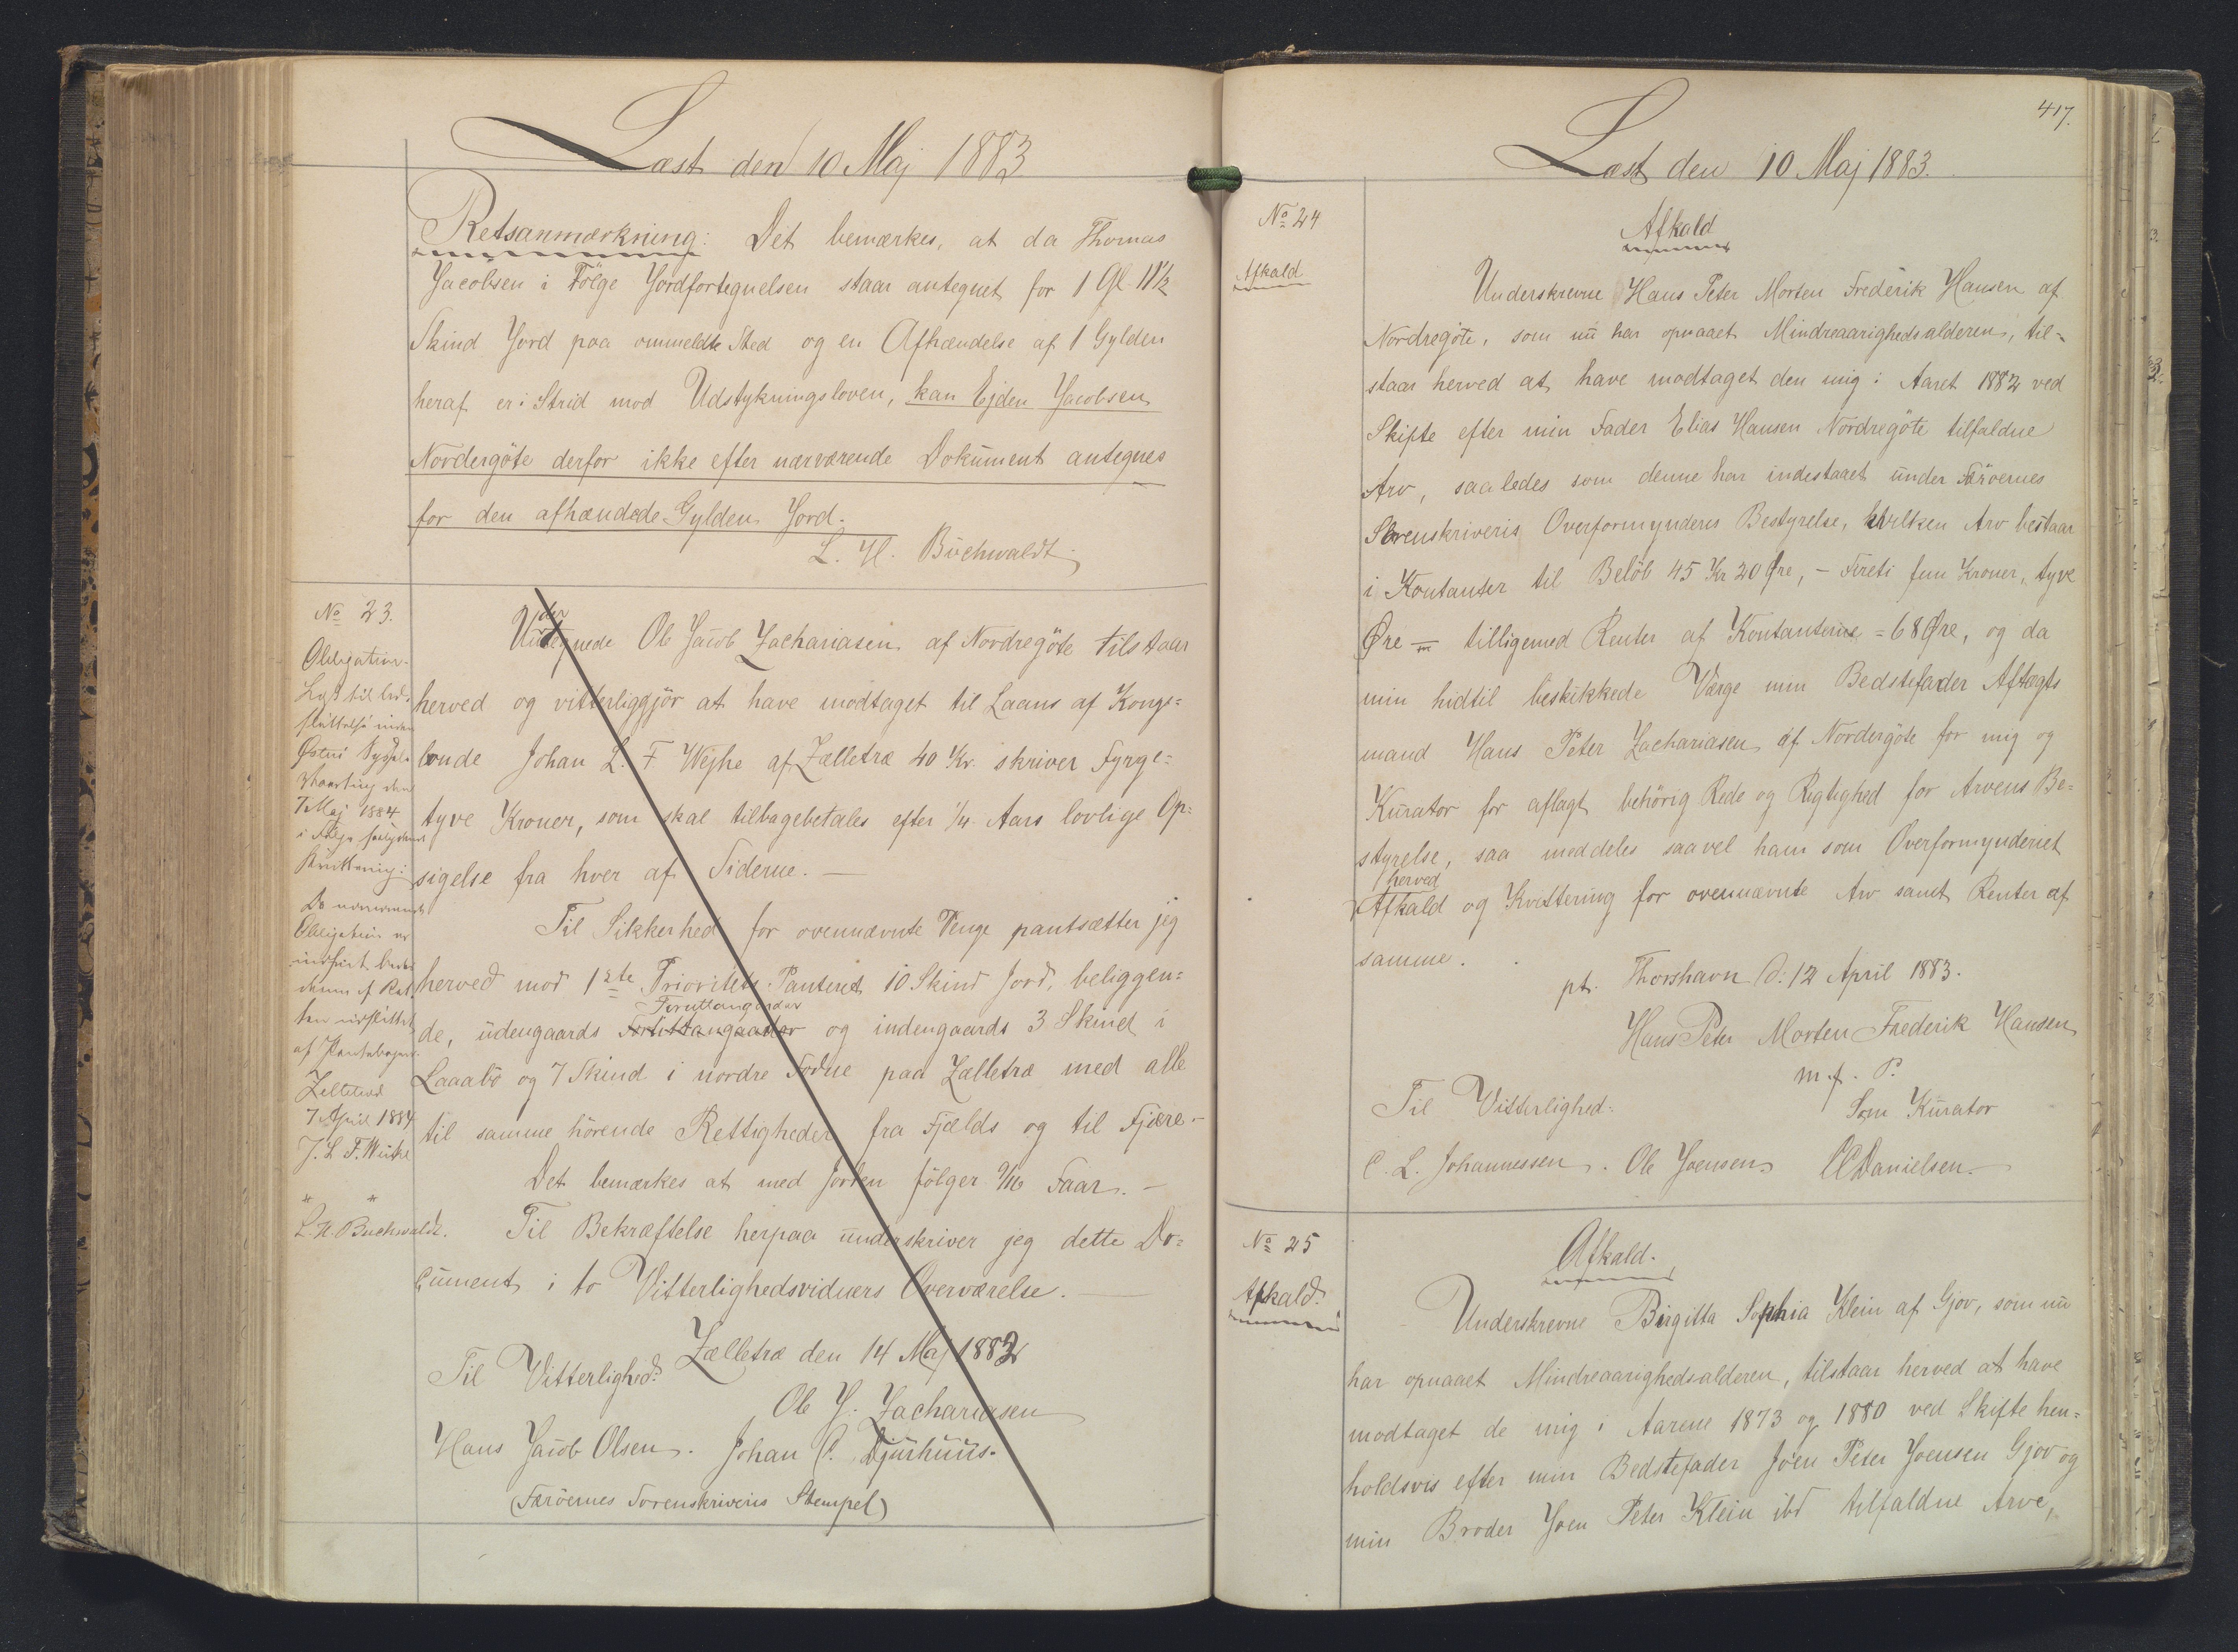 Læst den 10 Maj 1883
Retsanmærkning: Det bemærkes, at da Thomas
Jacobsen i Fölge Jordfortegnelsen staar antegnet for 1 Gl. 11½
Skind Jord paa ommeldte Sted og en Afhændelse af 1 Gylden
heraf er i Strid mod Udstykningsloven, kan Ejden Jacobsen
Nordergöte derfor ikke efter nærværende Dokument antegnes
for den afhændede Gylden Jord.
L. H. Buchwaldt
No 23.
Obligation.
Lyst til Ud-
slettelse inden
Østerö Syssels
Vaarting den
7 Maj 1884
i Fölge saalydende
Kvittering:
Da nærværende
Obligation er
indfriet bedes
denne af Ret
ten udslettet
af Pantebogen.
Zelletræ
7 April 1884
J. L. F. Weihe
" "
L. H. Buchwaldt.
der
Undtegnede Ole Jacob Zachariasen af Nordregöte tilstaar
herved og vitterliggjör at have modtaget til Laans af Konge-
bonde Johan L. F Wejhe af Zælletræ 40 Kr. skriver Fyrge-
tyve Kroner, som skal tilbagebetales efter ¼ Aars lovlige Op-
sigelse fra hver af Siderne. —
Til Sikkerhed for ovennævnte Penge pantsætter jeg
herved mod 1ste Prioritets Panteret 10 Skind Jord, beliggen-
Foruttangardar
de, udengaards Foruttangaardar og indengaards 3 Skind i
Laaabö og 7 Skind i nordre Fodne paa Zælletræ med alle
til samme hörende Rettigheder fra Fjælds og til Fjære. —
Det bemærkes at med Jorden fölger 9/16 Faar. —
Til Bekræftelse herpaa underskriver jeg dette Do-
cument i to Vitterlighedsvidners Overværelse. —
Zælletræ den 14 Maj 1882
Til Vitterlighed:
Ole J. Zachariasen
Hans Jacob Olsen. Johan C. Djurhuus.
(Færöernes Sorenskriveris Stempel)
417.
Læst den 10 Maj 1883.
No 24
Afkald
Afkald
Underskrevne Hans Peter Morten Frederik Hansen af
Nordregöte, som nu har opnaaet Mindreaarighedsalderen, til-
staar herved at have modtaget den mig i Aaret 1882 ved
Skifte efter min Fader Elias Hansen Nordregöte tilfaldne
Arv, saaledes som denne har indestaaet under Færöernes
Sorenskriveris Overformynderis Bestyrelse, hvilken Arv bestaar
i Kontanter til Belöb 45 Kr 20 Øre, — Fireti fem Kroner, tyve
Øre — tilligemed Renter af Kontanterne = 68 Øre, og da
min hidtil beskikkede Værge min Bedstefader Aftægts
mand Hans Peter Zachariasen af Nordergöte for mig og
Kurator for aflagt behörig Rede og Rigtighed for Arvens Be-
styrelse, saa meddeles saavel ham som Overformynderiet
herved
Afkald og Kvittering for ovennævnte Arv samt Renter af
samme.
pt. Thorshavn d: 12 April 1883.
Hans Peter Morten Frederik Hansen
m. f. P.
Til Vitterlighed:
Som Kurator
C. L. Johannessen. Ole Joensen CCDanielsen. —
No 25
Afkald.
Afkald.
Underskrevne Birgitta Sophia Klein af Gjov, som nu
har opnaaet Mindreaarighedsalderen, tilstaar herved at have
modtaget de mig i Aarene 1873 og 1880 ved Skifte hen-
holdsvis efter min Bedstefader Joen Peter Joensen Gjov og
min Broder Joen Peter Klein ibd tilfaldne Arve,